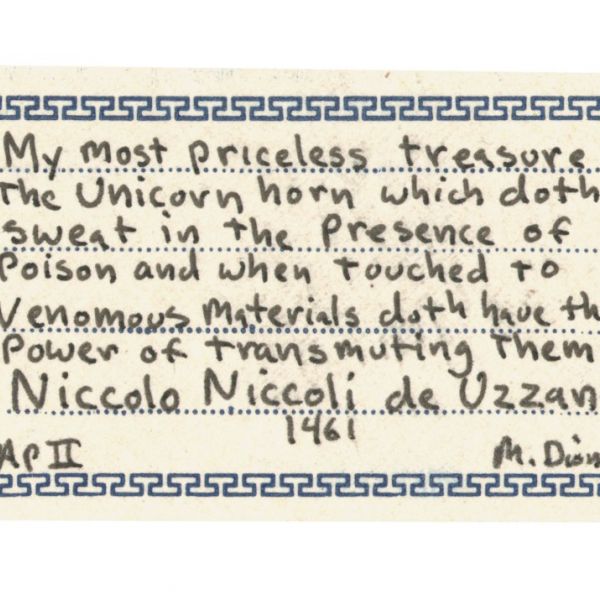 My most priceless treasure
The Unicorn horn which doth
sweat in the Presence of
Poison and when touched to
Venomous Materials doth have th
Power of transmuting Them
Niccolo Niccoli de Uzzan
1461
AP II M. Dion